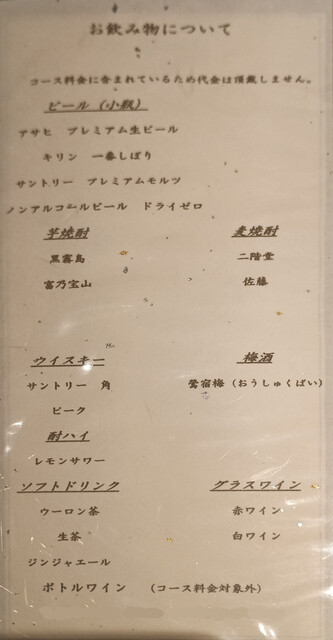 お飲み物について
コース料金に含まれているため代金は頂戴しません。
ビール（小瓶）
アサヒ　プレミアム生ビール
キリン　一番しぼり
サントリー　プレミアムモルツ
ノンアルコールビール　ドライゼロ
芋焼酎　麦焼酎
黒霧島　二階堂
富乃宝山　佐藤
ウイスキー　梅酒
サントリー　角　鶯宿梅（おうしゅくばい）
ピーク
酎ハイ
レモンサワー
ソフトドリンク　グラスワイン
ウーロン茶　赤ワイン
生茶　白ワイン
ジンジャエール
ボトルワイン　（コース料金対象外）